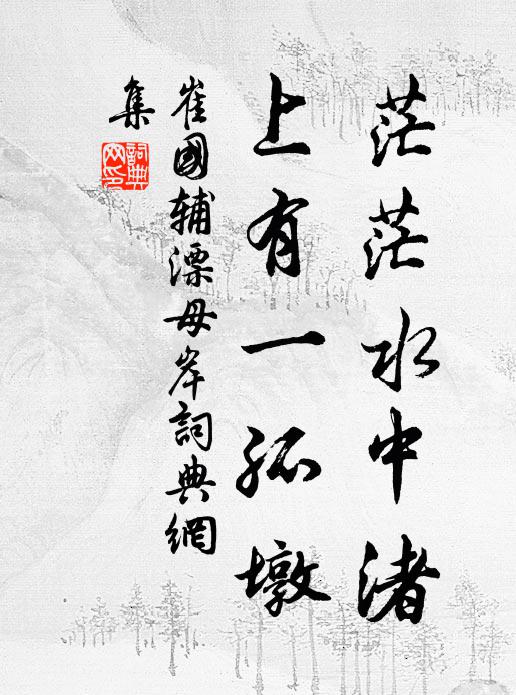 茫茫水中渚
上有一孤墩
崔國輔漂母岸詞典網
集
詞典網印